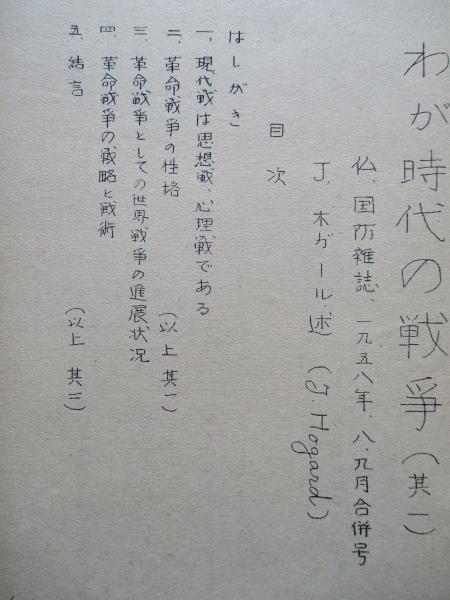 わが時代の戦爭（其一）
仏、国防雑誌、一九五八年、八、九月合併号
J. ホガール、述 (J. Hogard)
目次
はしがき
一、現代戦は思想戦、心理戦である
二、革命戦爭の性格 （以上 其一）
三、革命戦爭としての世界戦爭の進展状況
四、革命戦爭の戦略と戦術
五、結言 （以上 其三）